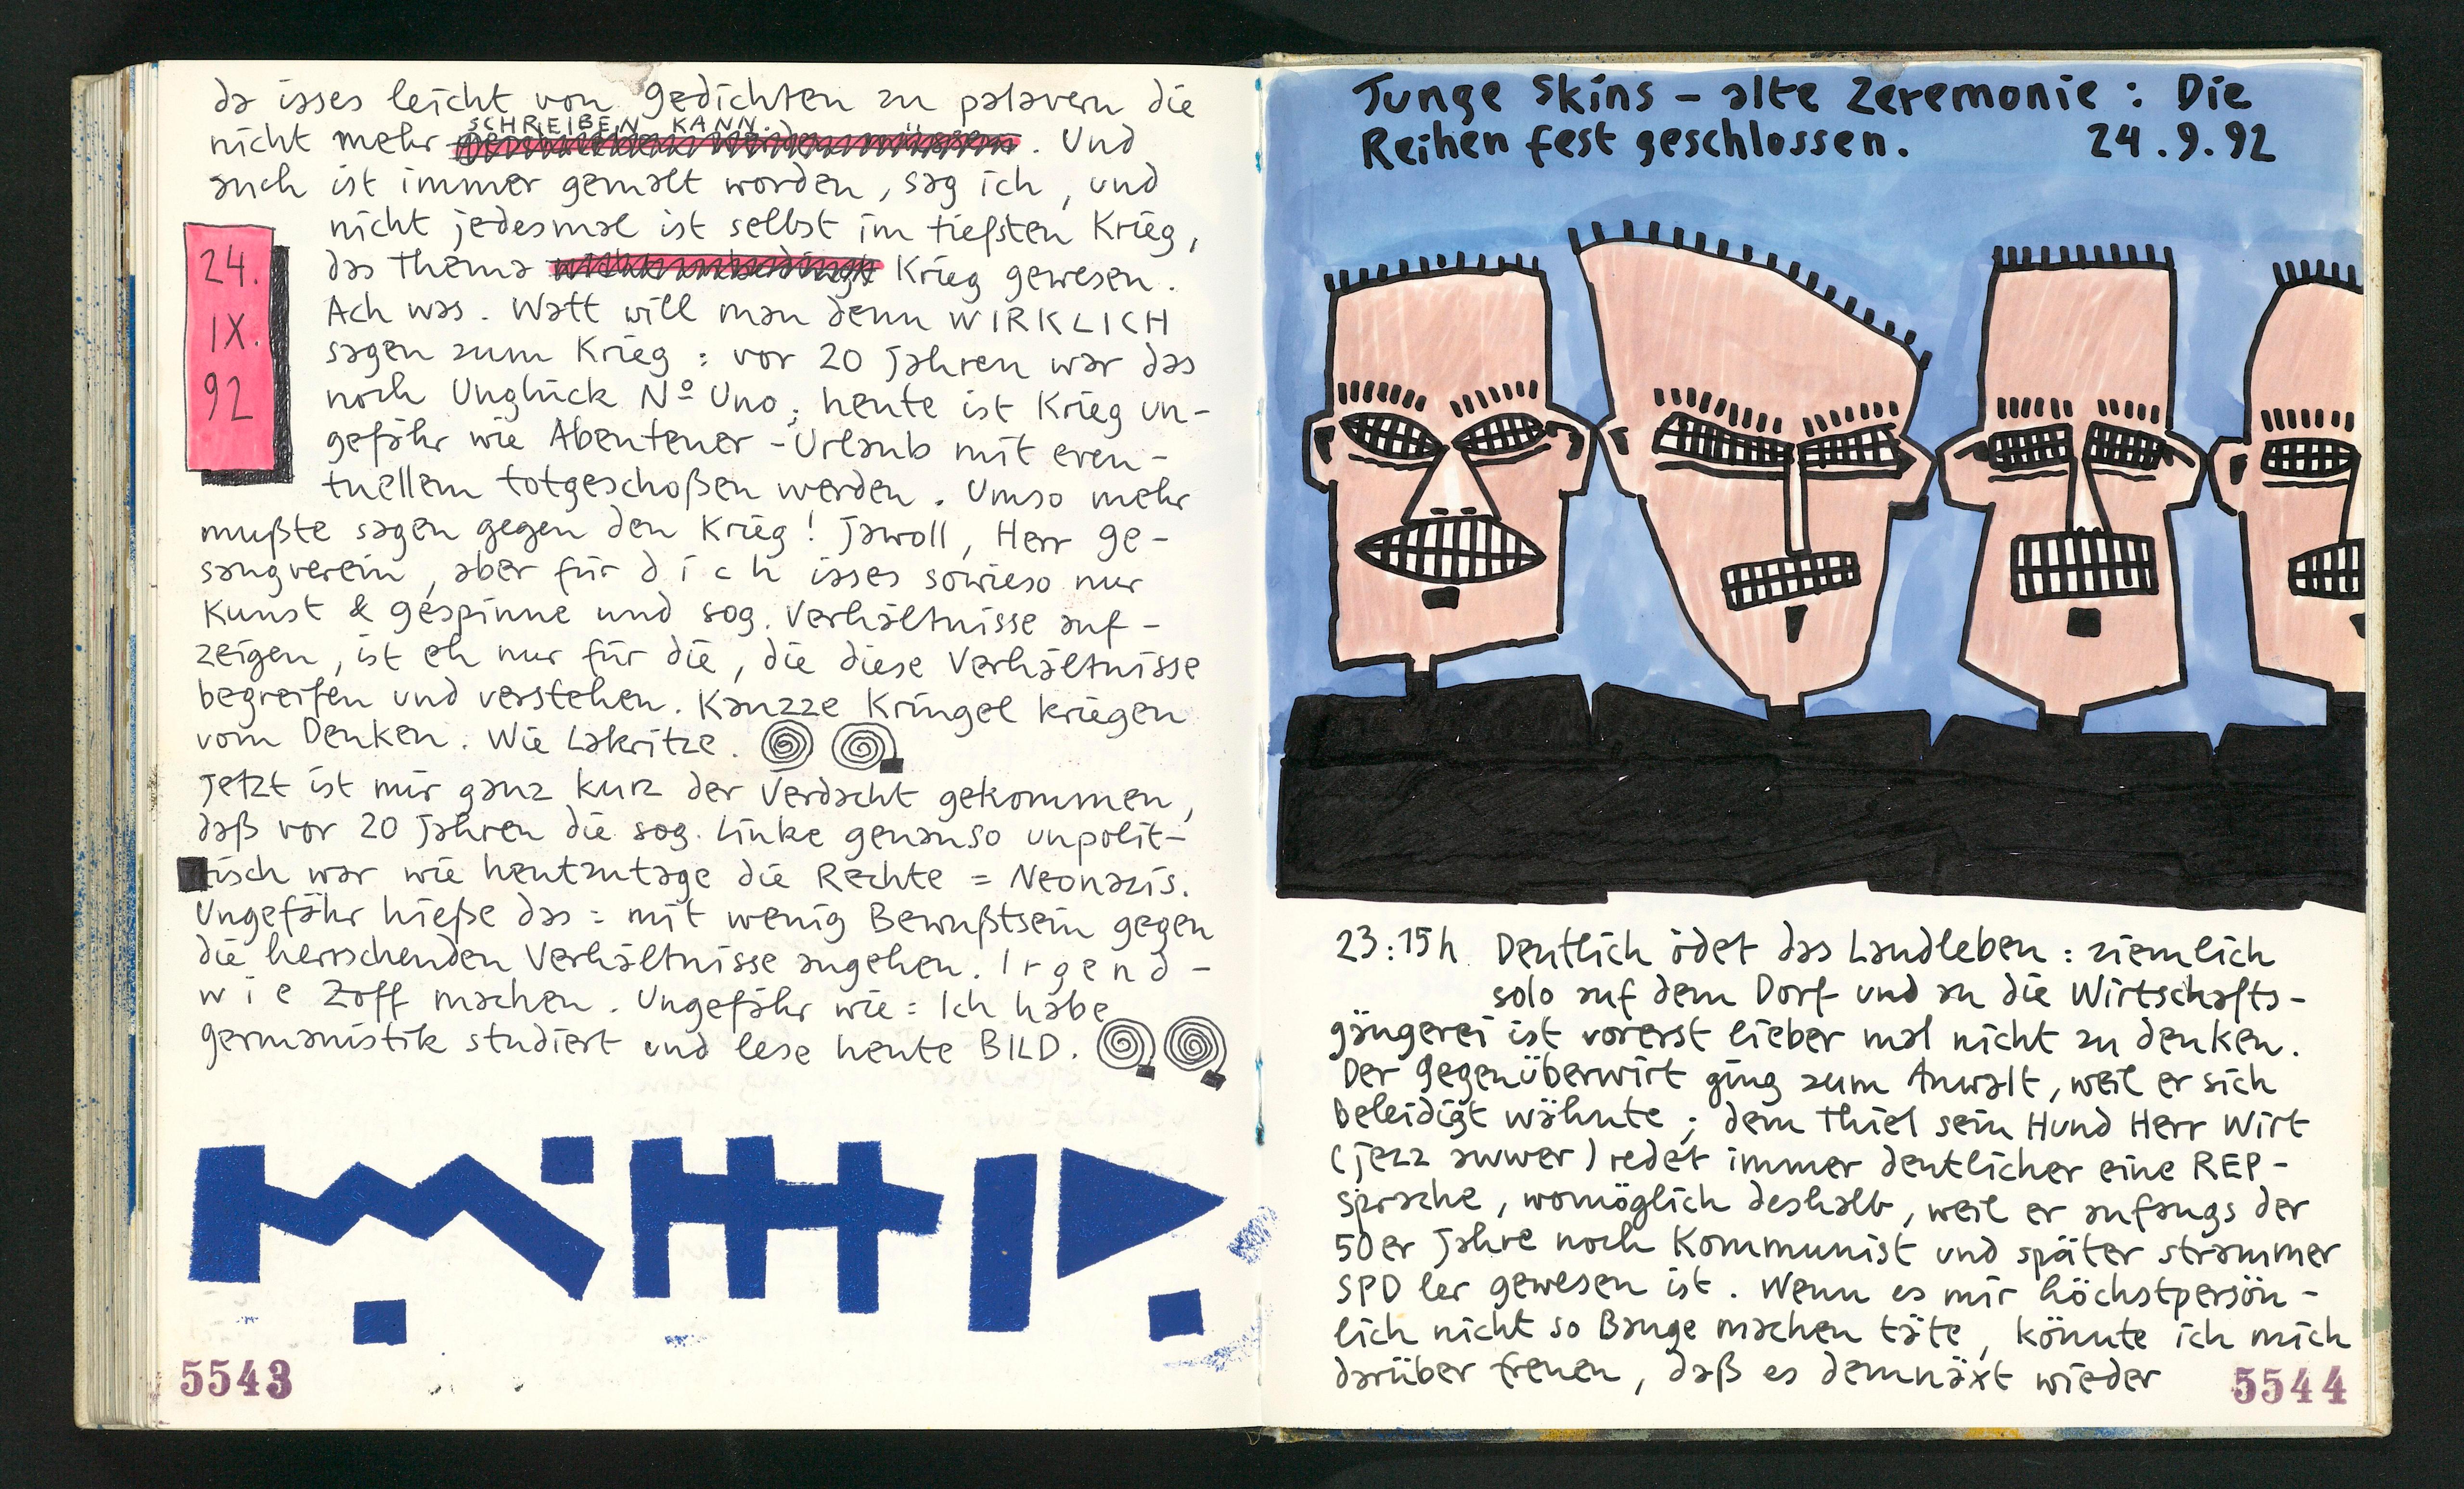 da isses leicht von gedichten zu palavern die
SCHREIBEN KANN.
nicht mehr . Und
auch ist immer gemalt worden, sag ich, und
nicht jedesmal ist selbst im tiefsten Krieg,
das Thema Krieg gewesen.
Ach was. Watt will man denn WIRKLICH
sagen zum Krieg : vor 20 Jahren war das
noch Unglück Nº Uno, heute ist Krieg un-
gefähr wie Abenteuer-Urlaub mit even-
tuellem totgeschoßen werden. Umso mehr
mußte sagen gegen den Krieg! Jawoll, Herr ge-
sangverein, aber für dich isses sowieso nur
Kunst & gespinne und sog. Verhältnisse auf-
zeigen, ist eh nur für die, die diese Verhältnisse
begreifen und verstehen. Kanzze Kringel kriegen
vom Denken. Wie Lakritze.
Jetzt ist mir ganz kurz der Verdacht gekommen,
daß vor 20 Jahren die sog. Linke genauso unpolit-
isch war wie heutzutage die Rechte = Neonazis.
Ungefähr hieße das : mit wenig Bewußtsein gegen
die herrschenden Verhältnisse angehen. Irgend-
wie Zoff machen. Ungefähr wie : Ich habe
germanistik studiert und lese heute BILD.
24.
IX.
92
5543
Junge Skins – alte Zeremonie : Die
Reihen fest geschlossen. 24.9.92
23:15h Deutlich ödet das Landleben : ziemlich
solo auf dem Dorf und an die Wirtschafts-
gängerei ist vorerst lieber mal nicht zu denken.
Der gegenüberwirt ging zum Anwalt, weil er sich
beleidigt wähnte ; dem Thiel sein Hund Herr Wirt
(jezz awwer) redet immer deutlicher eine REP-
sprache, womöglich deshalb, weil er anfangs der
50er Jahre noch Kommunist und später strammer
SPD ler gewesen ist. Wenn es mir höchstpersön-
lich nicht so Bange machen täte, könnte ich mich
darüber freuen, daß es demnäxt wieder
5544